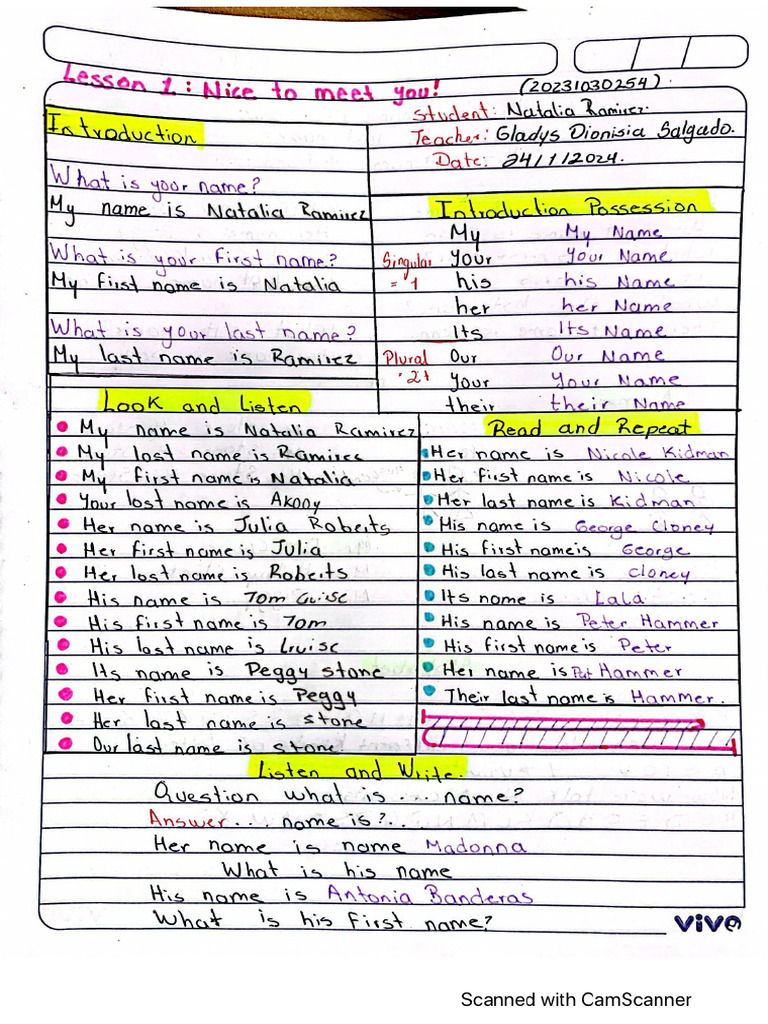 Lesson 1: Nice to meet you!
(20231030254).
Student: Natalia Ramirez.
Teacher: Gladys Dionisia Salgado.
Date: 24/1/2024.
Introduction
What is your name?
My name is Natalia Ramirez
What is your first name?
My first name is Natalia
What is your last name?
My last name is Ramirez
Introduction Possession
My My Name
Singular your your Name
= 1 his his Name
her her Name
Its Its Name
Plural Our Our Name
2+ your your Name
their their Name
Look and Listen
My name is Natalia Ramirez
My last name is Ramirez
My first name is Natalia
Your last name is
Her name is Julia Roberts
Her first name is Julia
Her last name is Roberts
His name is Tom
His first name is Tom
His last name is
Its name is Peggy stone
Her first name is Peggy
Her last name is stone
Our last name is stone
Read and Repeat
Her name is Nicole Kidman
Her first name is Nicole
Her last name is Kidman
His name is George Cloney
His first name is George
His last name is Cloney
Its name is Lala
His name is Peter Hammer
His first name is Peter
Her name is Pat Hammer
Their last name is Hammer.
Listen and Write.
Question what is ... name?
Answer... name is?...
Her name is name Madonna
What is his name
His name is Antonia Banderas
What is his first name?
vive
Scanned with CamScanner